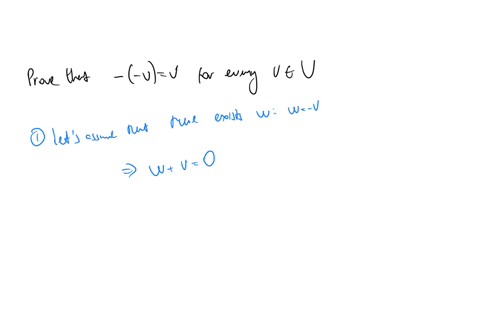 Prove that -(-v)=v for every v ∈ U
① let's assume that there exists w: w=-v
⇒ w+v=0